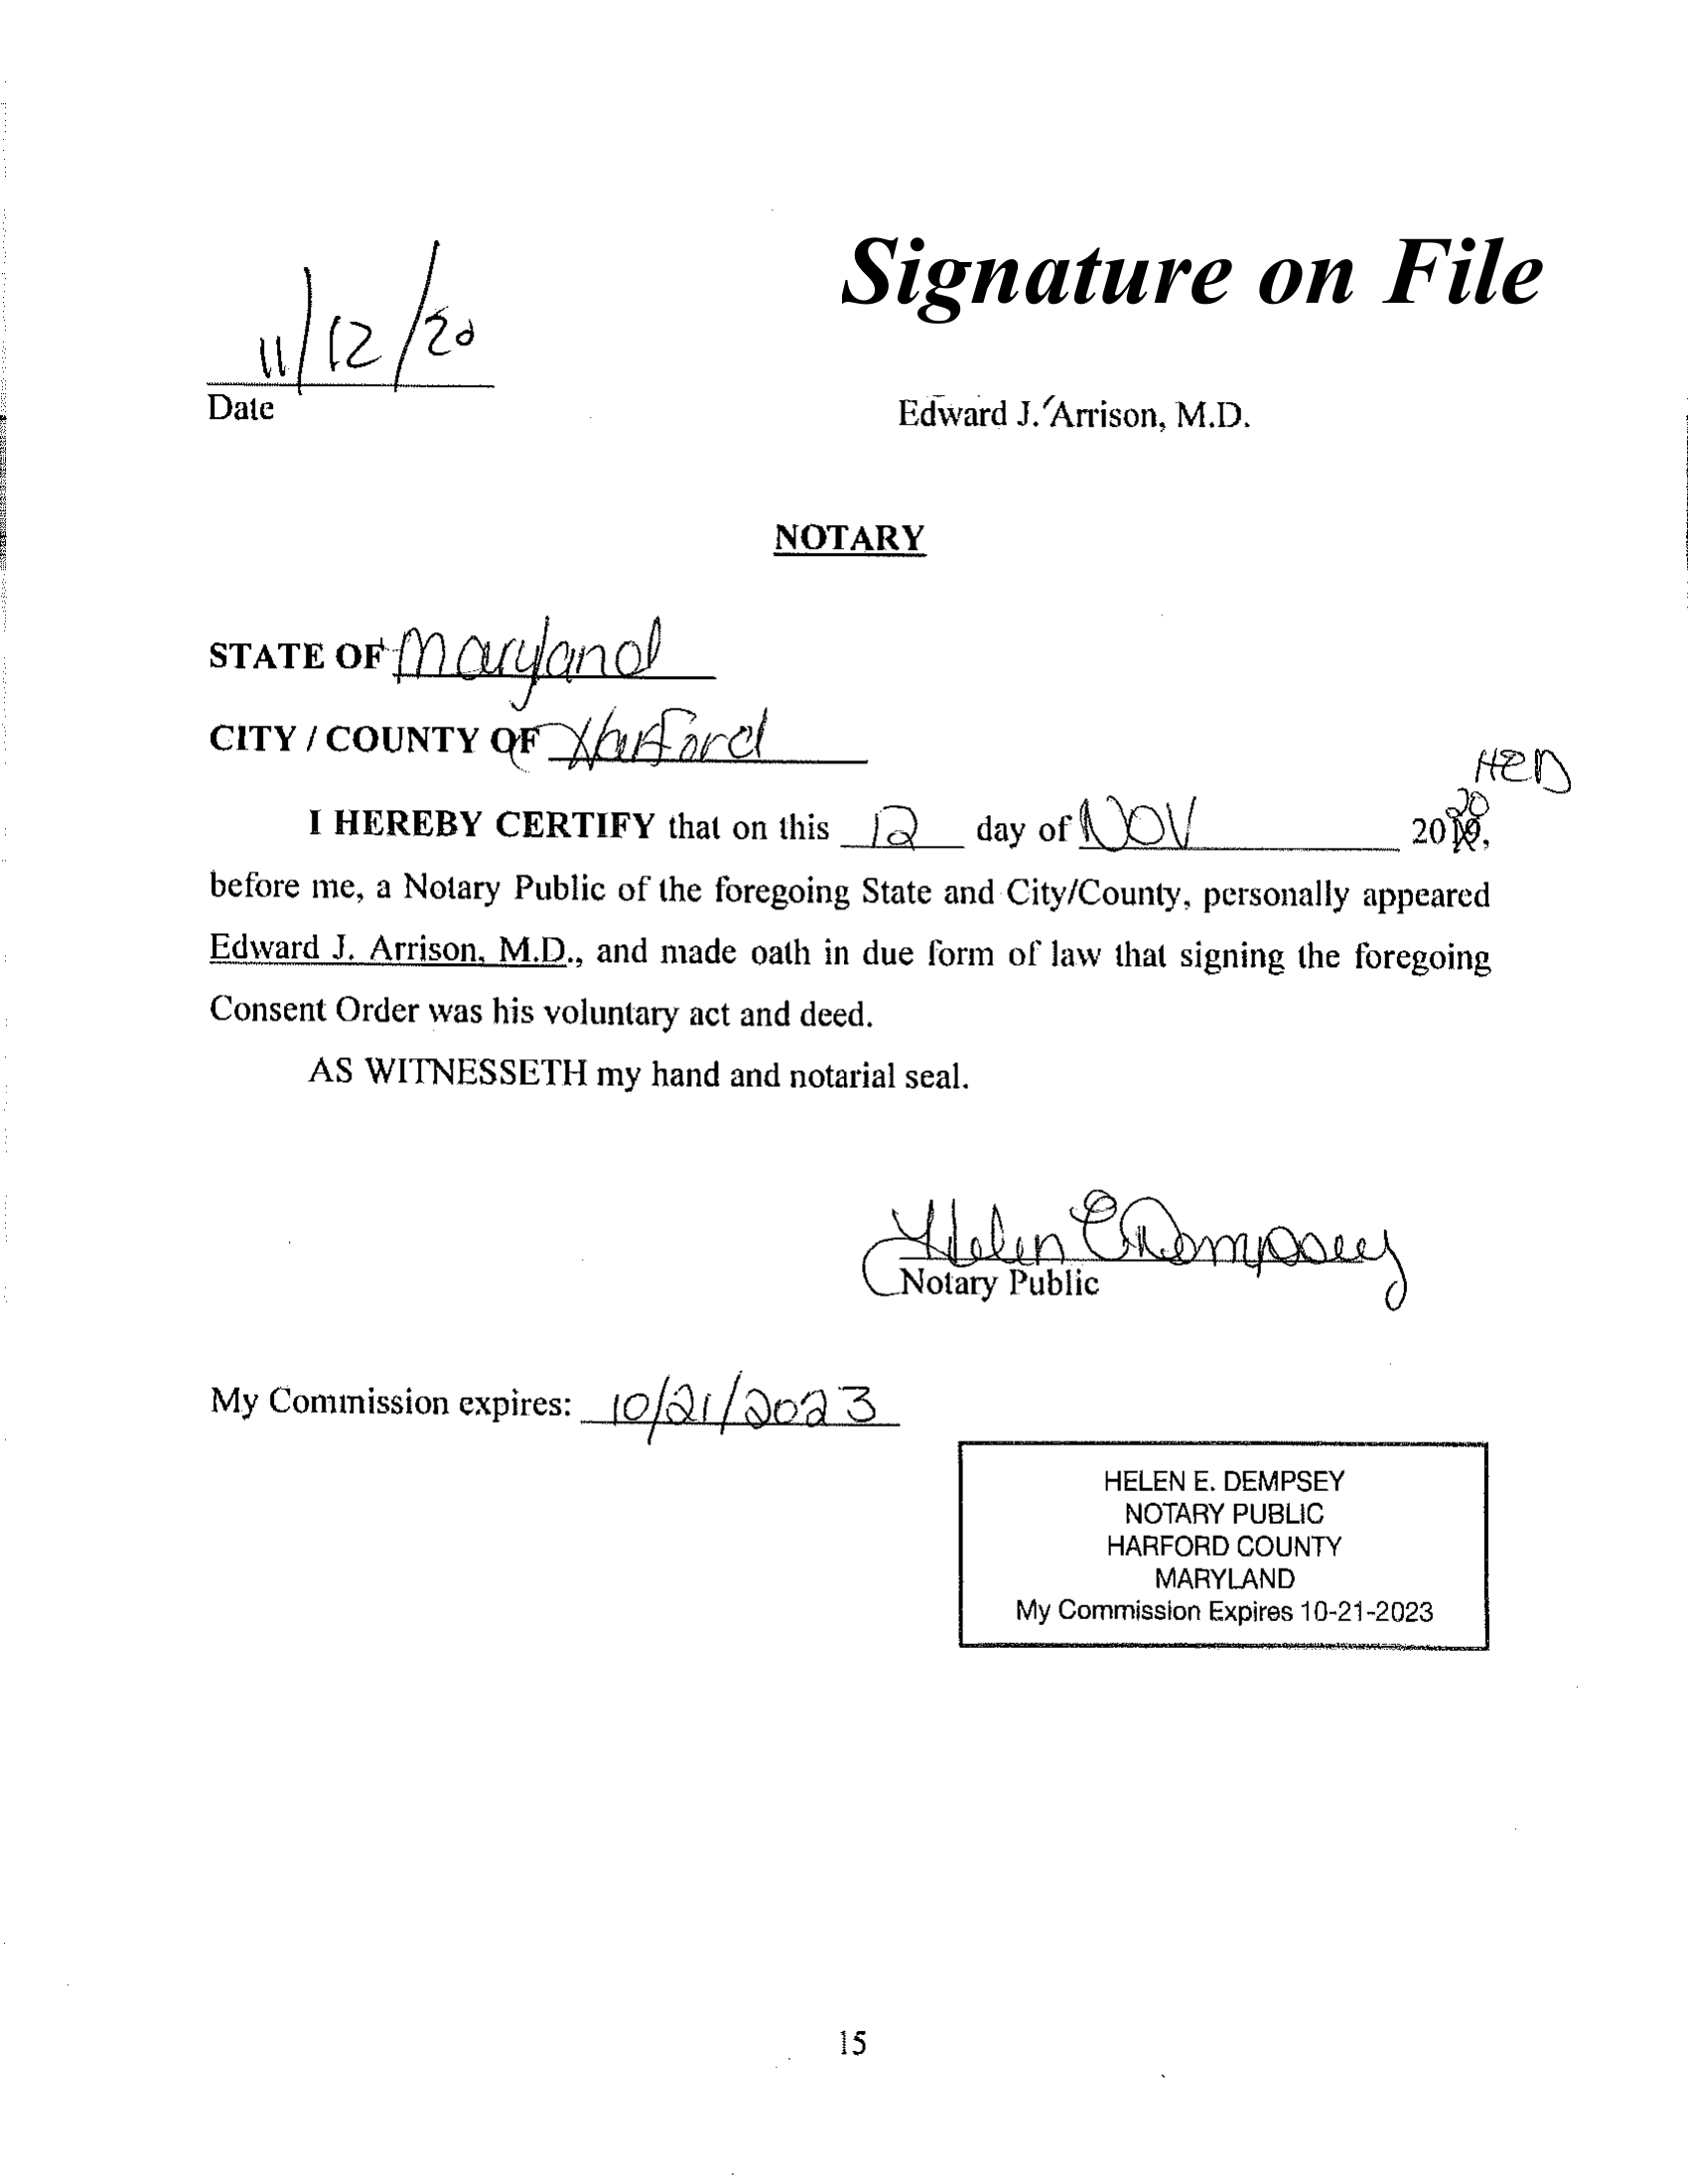 Signature on File
11/12/20
Date
Edward J. Arrison, M.D.
NOTARY
STATE OF Maryland
CITY / COUNTY OF Harford
HED
20
I HEREBY CERTIFY that on this 12 day of NOV 2019,
before me, a Notary Public of the foregoing State and City/County, personally appeared
Edward J. Arrison, M.D., and made oath in due form of law that signing the foregoing
Consent Order was his voluntary act and deed.
AS WITNESSETH my hand and notarial seal.
Helen E Dempsey
Notary Public
My Commission expires: 10/21/2023
HELEN E. DEMPSEY
NOTARY PUBLIC
HARFORD COUNTY
MARYLAND
My Commission Expires 10-21-2023
15